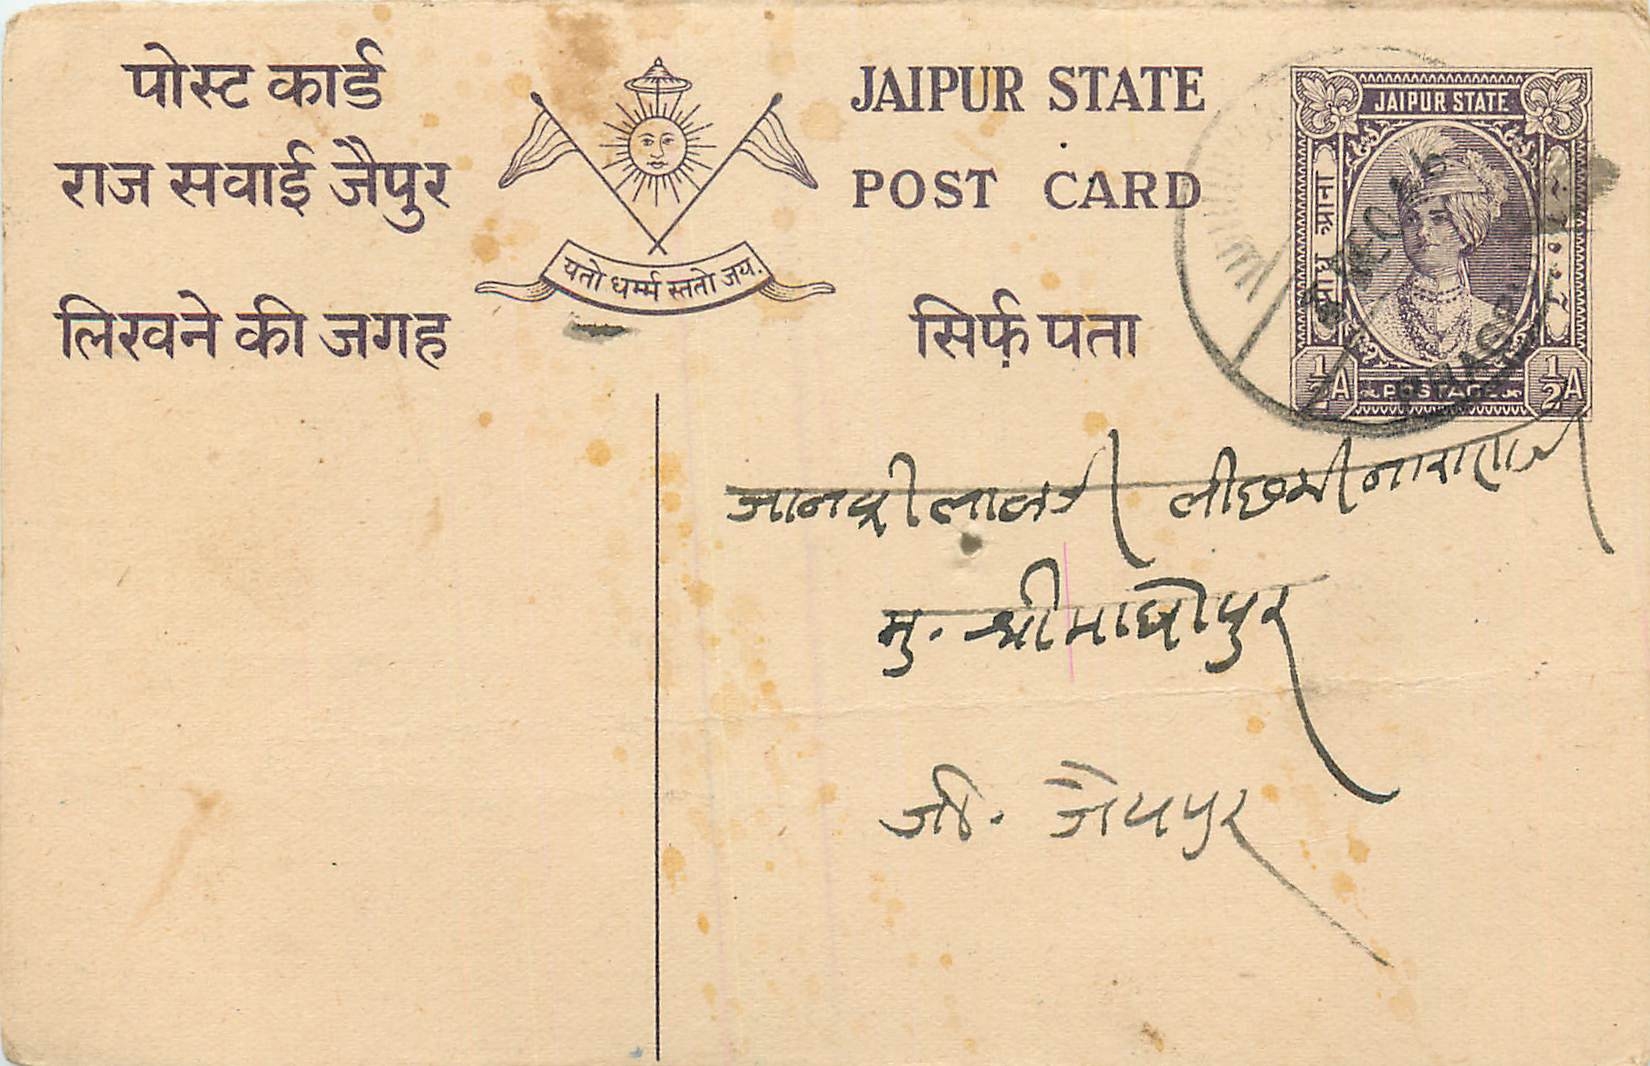 पोस्ट कार्ड
राज सवाई जैपुर
लिखने की जगह
यतो धर्म्म स्ततो जय.
JAIPUR STATE
POST CARD
सिर्फ़ पता
JAIPUR STATE
पाव आना
½A POSTAGE ½A
जानकीलालजी लीछमीनारायण
मु. श्रीमाधोपुर
जी. जैयपुर